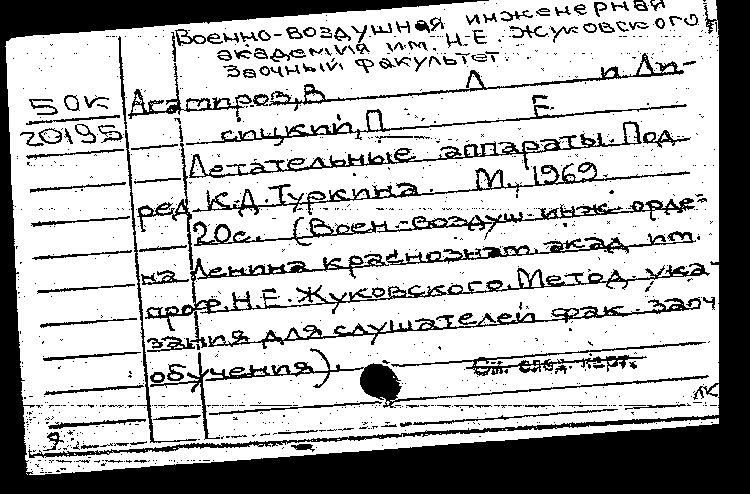 Военно-воздушная инженерная
академия им. Н.Е. Жуковского
Заочный факультет.
50к
20195
Агатиров, В Л и Ли-
сицкий, П Е
Летательные аппараты. Под
ред К.Д. Туркина. М., 1969.
20с. (Воен.-воздуш инж орде-
на Ленина краснознам. акад им.
проф. Н.Е. Жуковского. Метод. ука-
зания для слушателей фак. заоч
обучения).
См. след. карт.
лк